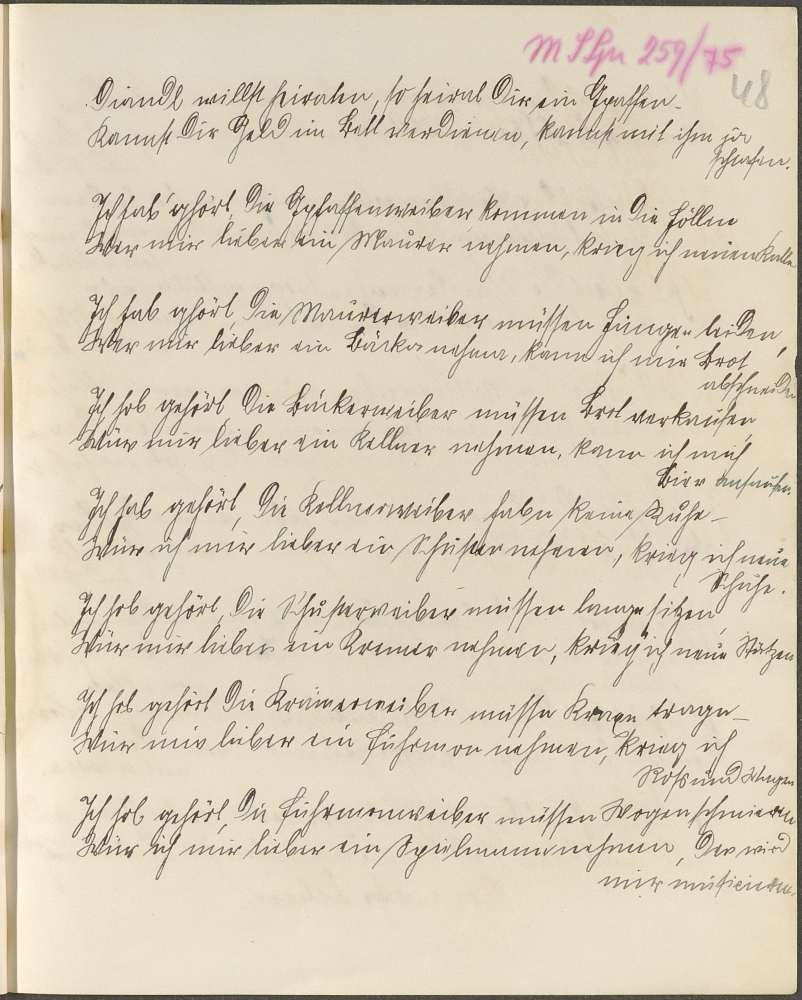 M S Gr 259/75
48
Diandl willst heiraten, so heirat Dir ein Gpaffen
Kannst Dir Geld im Bett verdienen, kannst mit ihm ja
schlafen.
Ich hab' ghört, die Gpfaffenweiber kommen in die Höllne
Wer mir lieber ein Maurer nehmen, krieg ich neuen
Ich hab ghört, die Maurerweiber müssen Hunger leiden,
Wer mir lieber ein Bäcker nehme, kann ich mir Brot
abschneiden
Ich hob gehört, die Bäckerweiber müssen Brot verkaufen,
Wür mir lieber ein Kellner nehmen, kann ich mich
Bier ansaufen.
Ich hab gehört, die Kellnerweiber habn keine Ruhe –
Wür ich mir lieber ein Schuster nehmen, krieg ich neue
Schuhe.
Ich hob gehört, die Schusterweiber müssen lange sitzen,
Wür mir lieber ein Kramer nehmen, krieg ich neue
Ich hob gehört die Krämerweiber müssn Kraxn tragn –
Wür mir lieber ein Fuhrmon nehmen, krieg ich
Roß und Wagen
Ich hob gehört, die Fuhrmonweiber müssen Wogen schmieren
Wür ich mir lieber ein Spielmann nehmen, der wird
mir musicieren.